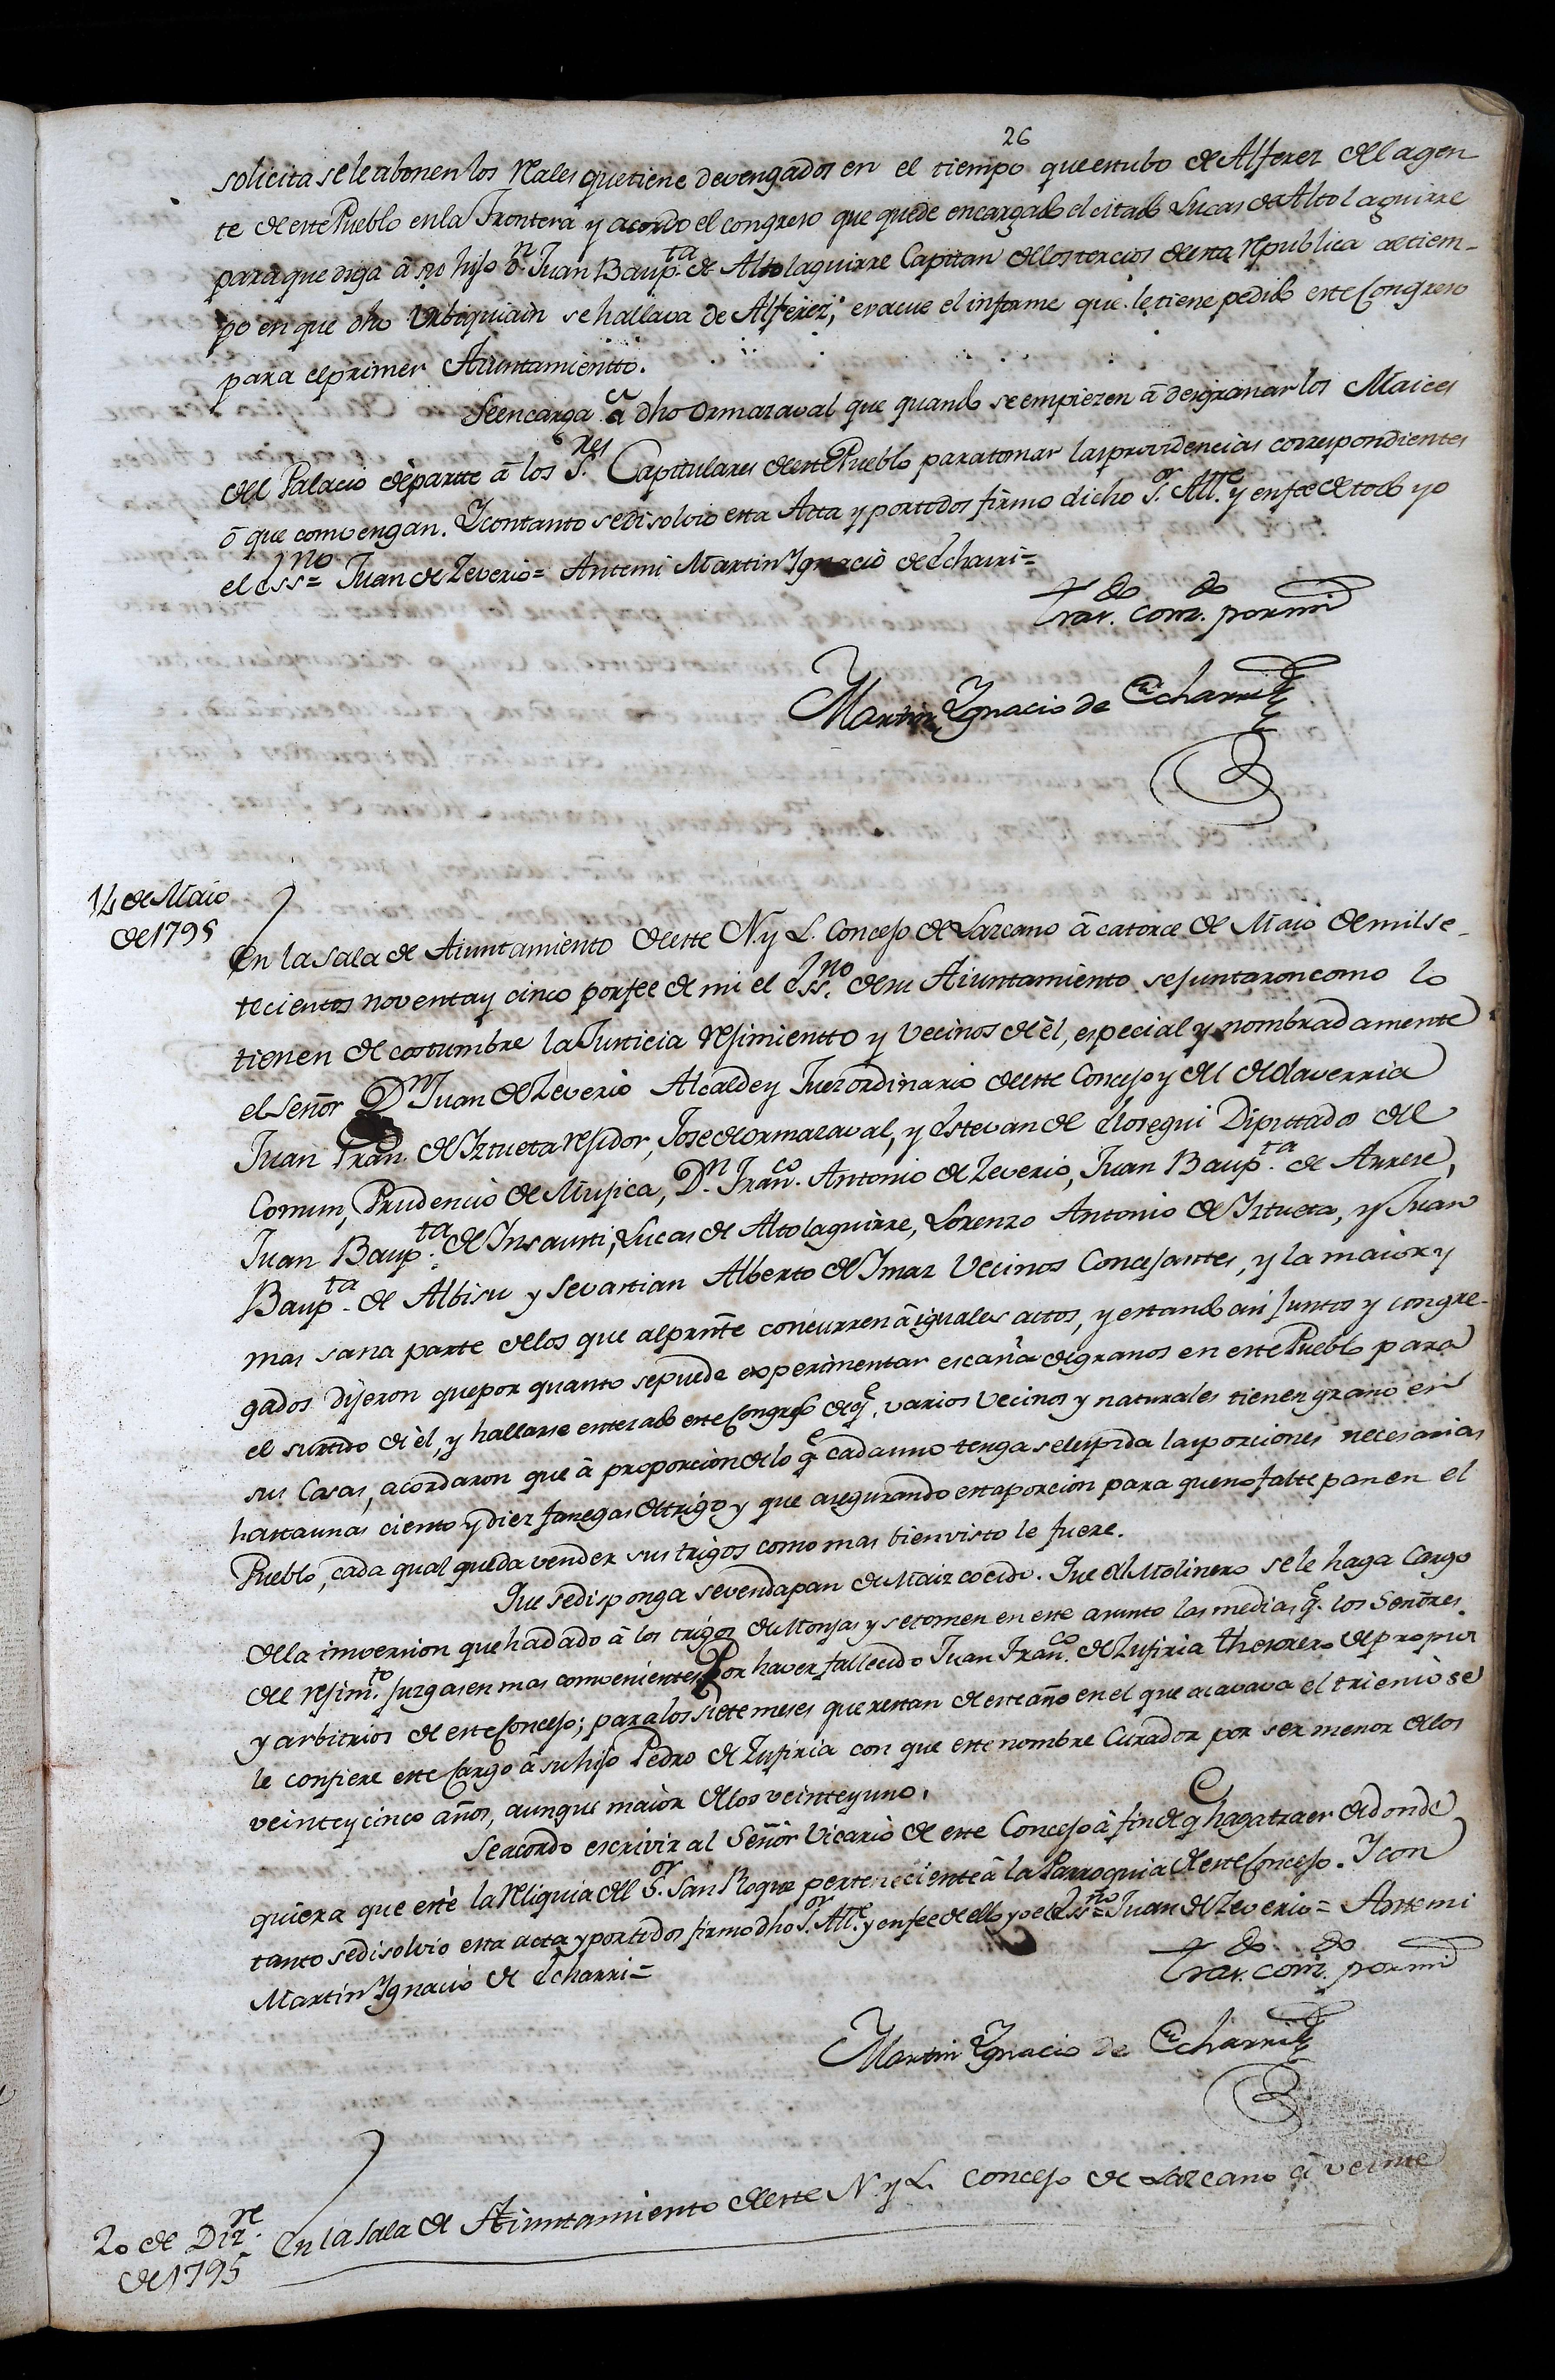 26
solicita se le abonen los Reales que tiene devengados en el tiempo que estubo de Alferez del agen
te de este Pueblo en la Frontera y acordo el congreso que quede encargado el citado Lucas de Altolaguirre
para que diga â su hijo Dn. Juan Baupta. de Altolaguirre Capitan de los tercios de esta Republica al tiem-
po en que dho Urbiquiain se hallava de Alferez, evacue el informe que le tiene pedido este Congreso
para el primer Aiuntamientto.
Se encarga â dho Ormazaval que quando se empiezen â desgranar los Maices
del Palacio dè partte â los Sres. Capitulares de este Pueblo para tomar las providencias correspondientes
ô que convengan. Y con tanto se disolvio esta Acta y por todos firmo dicho Sor. Alle. y en fee de todo yo
el Essno= Juan de Zeverio= Antemi Martin Ygnacio de Echarri=
Trasdo. corrdo. por mi
Martin Ygnacio de Echarri
14 de Maio
de 1795
En la Sala de Aiuntamiento de este N. y L. Concejo de Lazcano â catorce de Maio de mil se-
tecientos noventa y cinco por fee de mi el Essno. de su Aiuntamiento se juntaron como lo
tienen de costumbre la Justicia Rejimientto y Vecinos de èl, especial y nombradamente
el Señor Dn. Juan de Zeverio Alcalde y Juez ordinario de este Concejo y del de Olaverria
Juan Fran. de Iztueta rejidor, Jose de Ormazaval, y Estevan de Elosegui Diputtados del
Comun, Prudencio de Mujica, Dn. Franco. Antonio de Zeverio, Juan Baupta. de Arrese,
Juan Baupta. de Insausti, Lucas de Altolaguirre, Lorenzo Antonio de Iztueta, y Juan
Baupta. de Albisu y Sevastian Alberto de Ymaz Vecinos Concejantes, y la maior y
mas sana parte de los que al prnte concurren â iguales actos, y estando asi juntos y congre-
gados dijeron que por quanto se puede experimentar escasez de granos en este Pueblo para
el surtido de èl, y hallarse enterado este Congreso de qe. varios Vecinos y naturales tienen grano en
sus Casas, acordaron que â proporcion de lo qe cada uno tenga se le pida las porciones necesarias
hasta unas ciento y diez fanegas de trigo y que asegurando esta porcion para que no falte pan en el
Pueblo, cada qual pueda vender sus trigos como mas bien visto le fuere.
Que se disponga se venda pan de Maiz cocido. Que al Molinero se le haga Cargo
de la inversion que ha dado â los trigos de Monjas y se tomen en este asunto las medias qe. los Señores
del rejimto. juzgasen mas convenientes. Por haver fallecido Juan Franco. de Zufiria thesorero de propios
y arbitrios de este Concejo; para los siete meses que restan de este año en el que acavava el trienio se
le confiere este Cargo â su hijo Pedro de Zufiria con que este nombre Curador por ser menor de los
veinte y cinco años, aunque maior de los veinte y uno.
Se acordo escrivir al Señor Vicario de este Concejo â fin de qe haga traer de donde
quiera que estè la Reliquia del Sor. San Roque perteneciente â la Parroquia de este Concejo. Y con
tanto se disolvio esta acta y por todos firmo dho Sor. Alle. y en fee de ello yo el Essno= Juan de Zeverio= Antemi
Martin Ygnacio de Echarri=
Trasdo. corrdo. por mi
Martin Ygnacio de Echarri
20 de Dizre.
de 1795
En la Sala de Aiuntamiento de este N. y L. Concejo de Lazcano â veinte